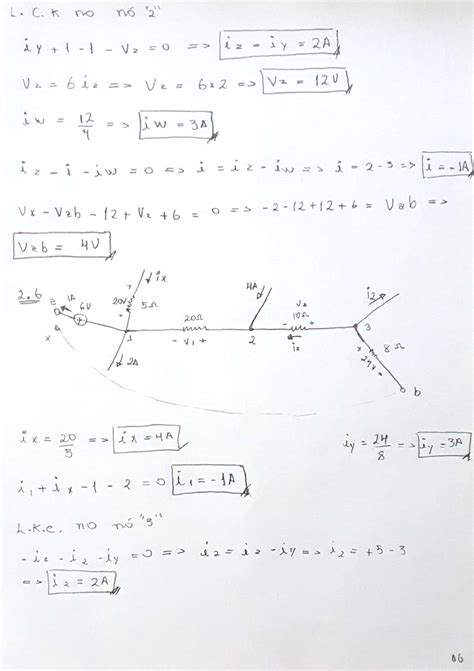 L.C.K no nó "2"
iy + 1 - 1 - Vz = 0 => iz - iy = 2A
Vz = 6 iz => Vz = 6x2 => Vz = 12V
iw = 12/4 => iw = 3A
iz - i - iw = 0 => i = iz - iw => i = 2 - 3 => i = -1A
Vx - Vab - 12 + Vz + 6 = 0 => -2 - 12 + 12 + 6 = Vab =>
Vab = 4V
2.6
a
6V
20V
5Ω
ix
20Ω
4A
10Ω
i2
3
x
1
2A
- V1 +
2
iz
24V
8Ω
b
ix = 20/5 => ix = 4A
iy = 24/8 => iy = 3A
i1 + ix - 1 - 2 = 0 i1 = -1A
L.K.C. no nó "3"
-iz - i2 - iy = 0 => i2 = iz - iy => i2 = +5 - 3
=> i2 = 2A
06